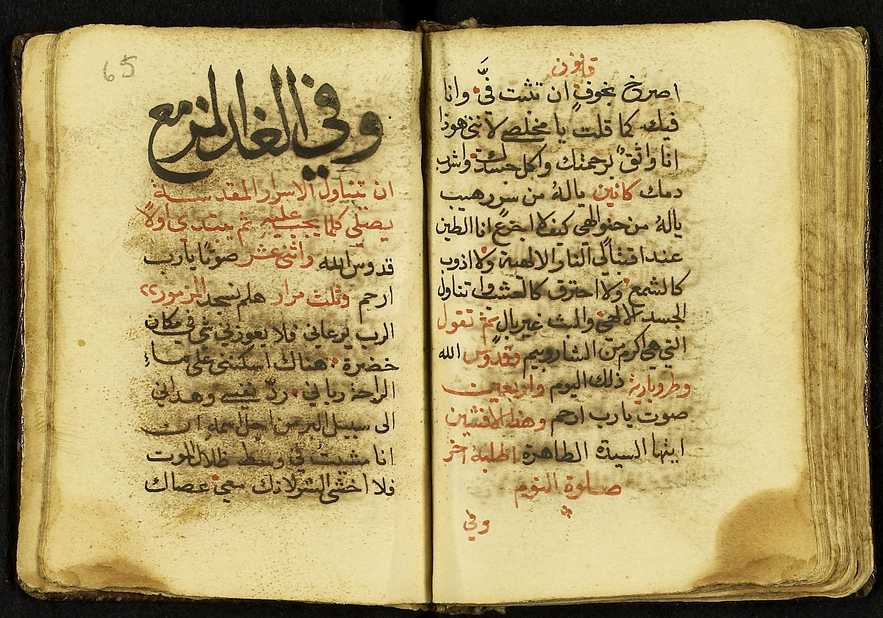 قانون
اصرخ بخوف ان تثبت فيَّ وانا
فيك كما قلت يا مخلصي لانني هوذا
انا واثق لرحمتك واكل جسدك واشرب
دمك كانين ياله من سر رهيب
ياله من حنو الهي كيف لا اجزع انا الطين
عند اقتبالي النار الالهية ولا اذوب
كالشمع ولا احترق كالعشب في تناول
الجسد الالهي والدم غير بال ثم تقول
التي هي اكرم من الشاروبيم وقدوس الله
وطروبارية ذلك اليوم واربعين
صوت يا رب ارحم وهذا الافشين
ايتها السيدة الطاهرة الطلبة اخر
صلوة النوم
وفي
65
وفي الغد المزمع
ان تتناول الاسرار المقدسة
يصلي كلما يجب عليه ثم يبتدي اولا
قدوس الله واثني عشر صوتا يا رب
ارحم وثلث مرار هلم نسجد المزمور ٢٢
الرب يرعاني فلا يعوزني شي في مكان
خضرة هناك اسكنني على ماء
الراحة رباني رد نفسي وهداني
الى سبيل البر من اجل اسمه ان
انا مشيت في وسط ظلال الموت
فلا اخشى الشر لانك معي عصاك